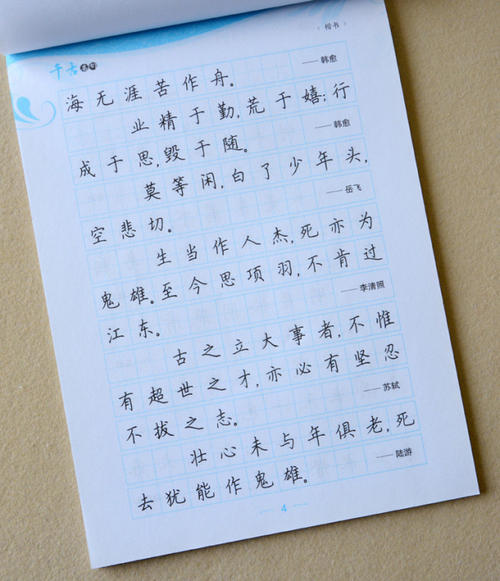 楷书
千古名句
海无涯苦作舟。
——韩愈
业精于勤,荒于嬉;行
成于思,毁于随。
——韩愈
莫等闲,白了少年头,
空悲切。
——岳飞
生当作人杰,死亦为
鬼雄。至今思项羽,不肯过
江东。
——李清照
古之立大事者,不惟
有超世之才,亦必有坚忍
不拔之志。
——苏轼
壮心未与年俱老,死
去犹能作鬼雄。
——陆游
4